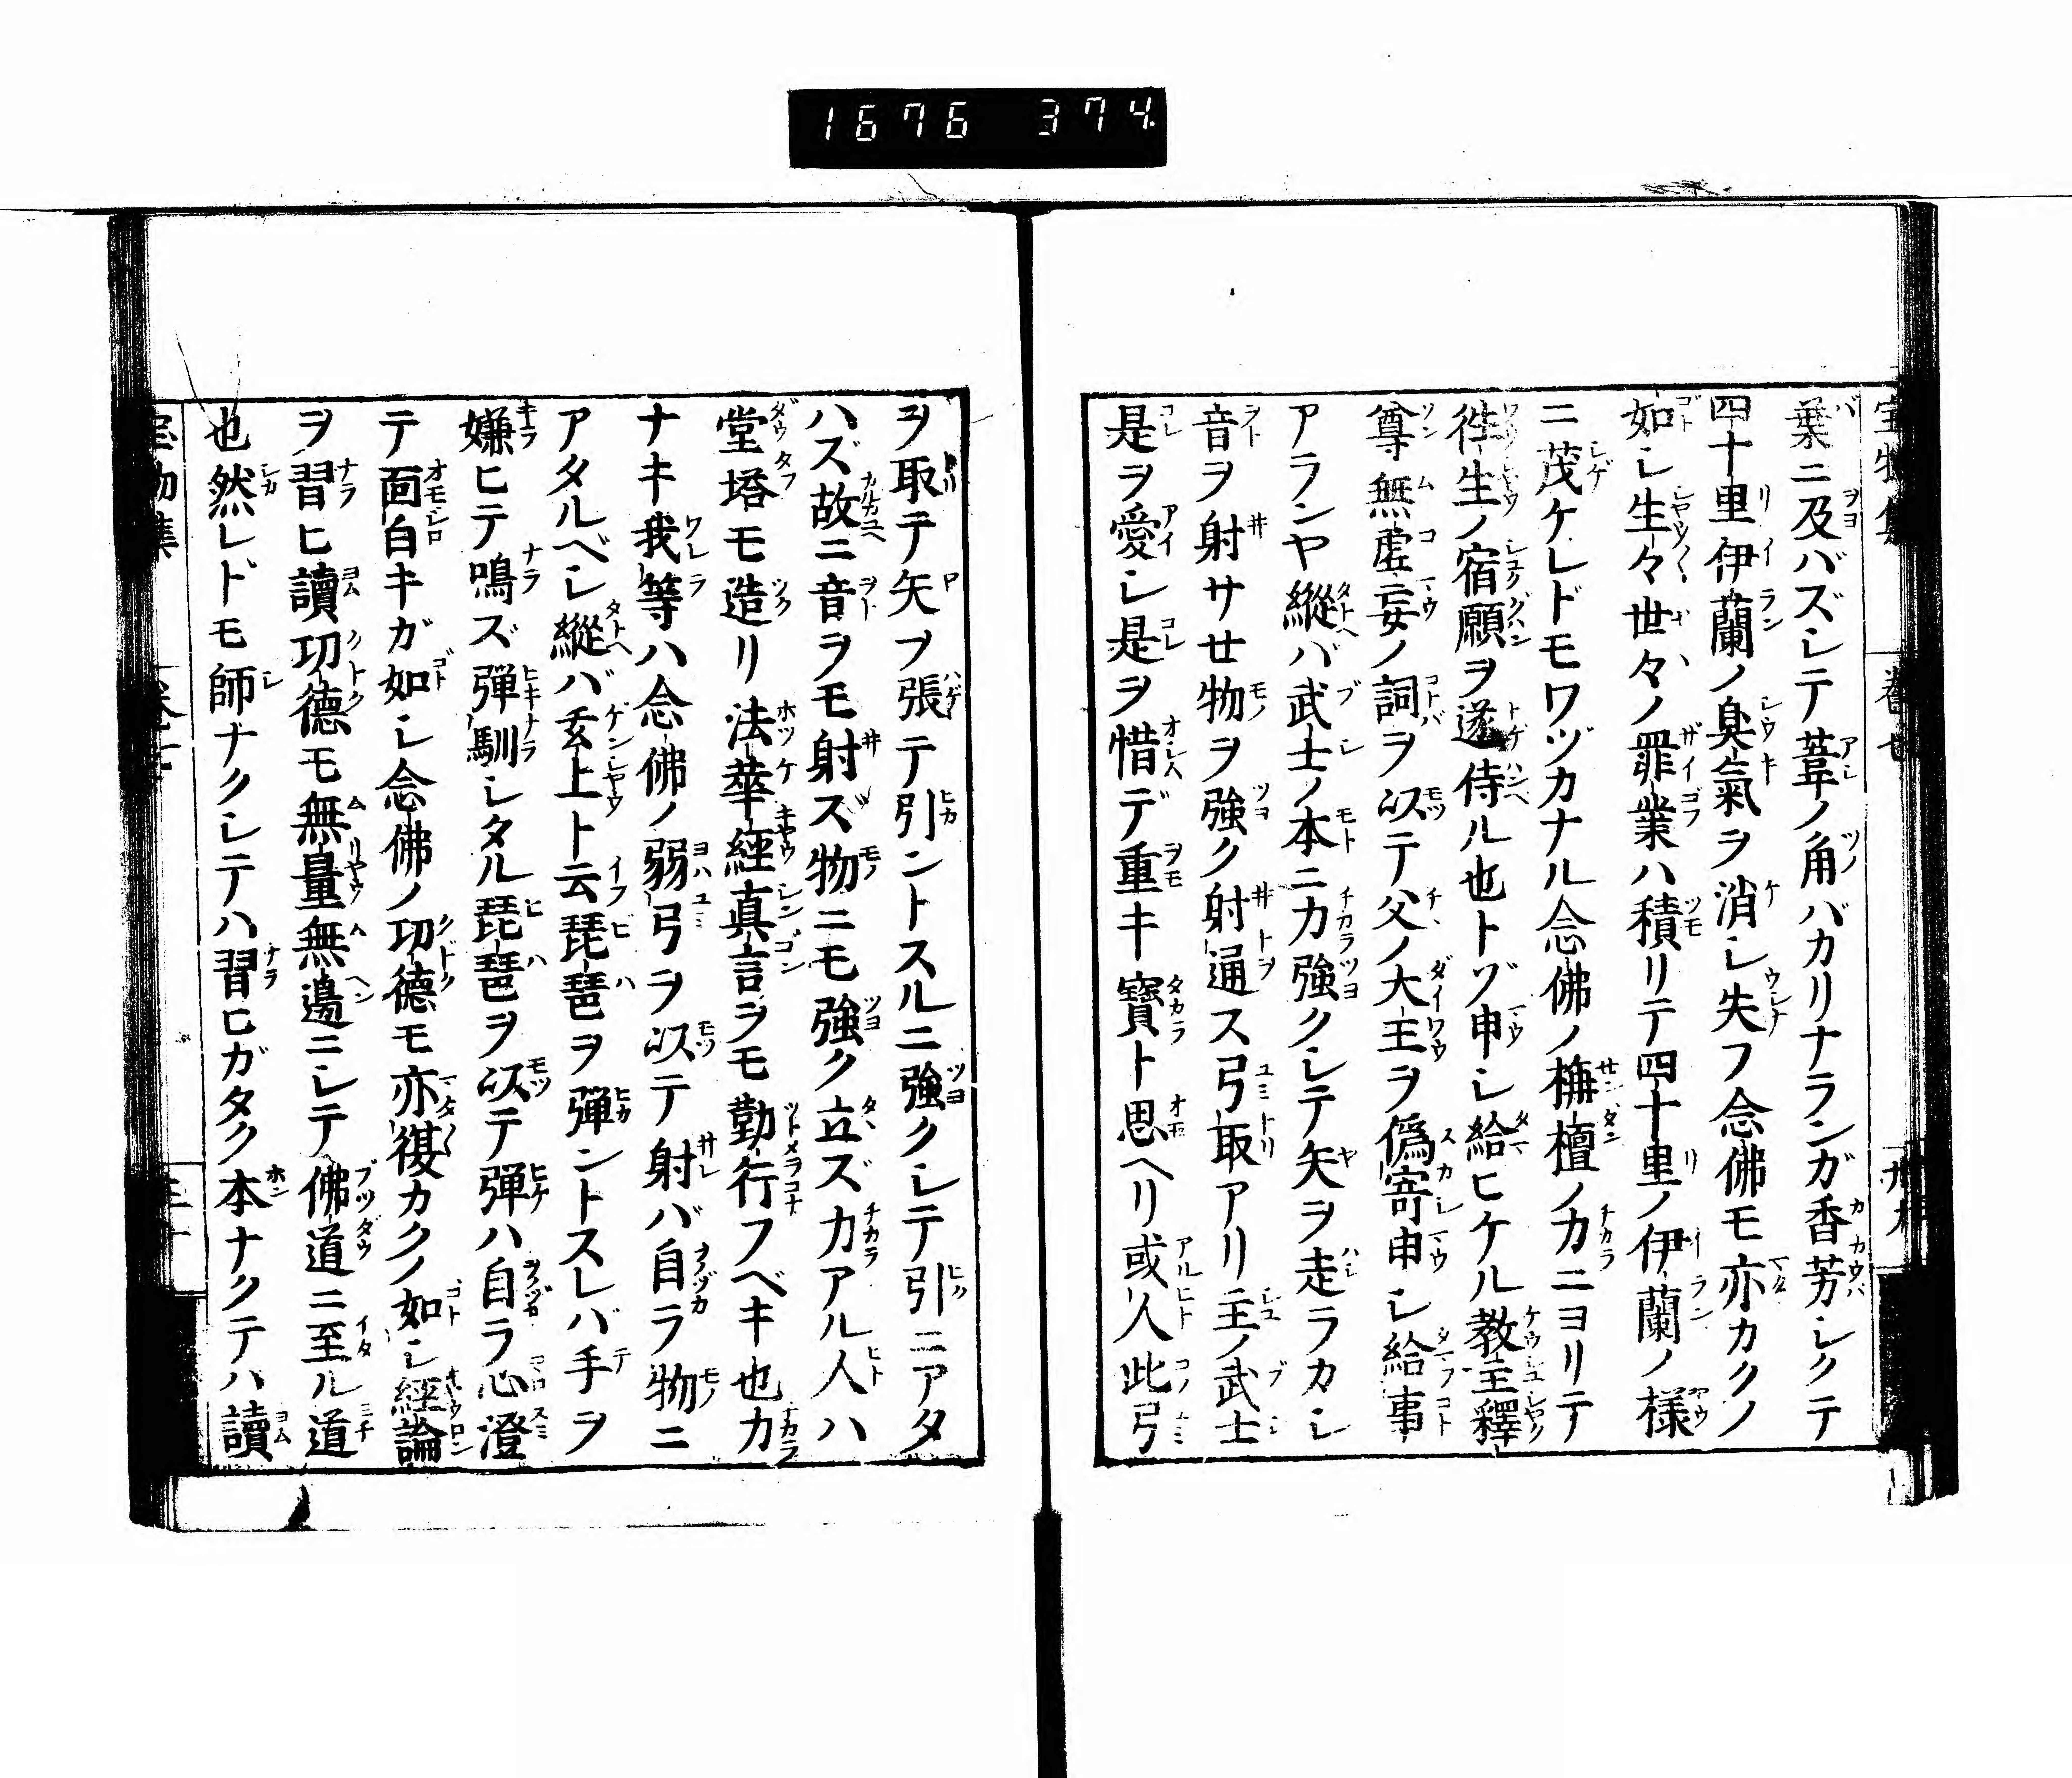 1676 374
葉ニ及バズシテ葦ノ角バカリナランガ香芳シクテ
四十里伊蘭ノ臭氣ヲ消シ失フ念佛モ亦カクノ
如シ生々世々ノ罪業ハ積リテ四十里ノ伊蘭ノ様
ニ茂ケレドモワヅカナル念佛ノ栴檀ノ力ニヨリテ
徃生ノ宿願ヲ遂侍ル也トゾ申シ給ヒケル教主釋
尊無虚妄ノ詞ヲ以テ父ノ大王ヲ偽寄申シ給事
アランヤ縱バ武士ノ本ニ力強クシテ矢ヲ走ラカシ
音ヲ射サセ物ヲ強ク射通ス弓取アリ主ノ武士
是ヲ愛シ是ヲ惜デ重キ寳ト思ヘリ或人此弓
ヲ取テ矢ヲ張テ引ントスルニ強クシテ引ニアタ
ハズ故ニ音ヲモ射ズ物ニモ強ク立ズ力アル人ハ
堂塔モ造リ法華經真言ヲモ勤行フベキ也力
ナキ我等ハ念佛ノ弱弓ヲ以テ射バ自ラ物ニ
アタルベシ縱バ玄上ト云琵琶ヲ弾ントスレバ手ヲ
嫌ヒテ鳴ズ弾馴シタル琵琶ヲ以テ弾ハ自ラ心澄
テ面白キガ如シ念佛ノ功德モ亦復カクノ如シ經論
ヲ習ヒ讀功德モ無量無邊ニシテ佛道ニ至ル道
也然レドモ師ナクシテハ習ヒガタク本ナクテハ讀